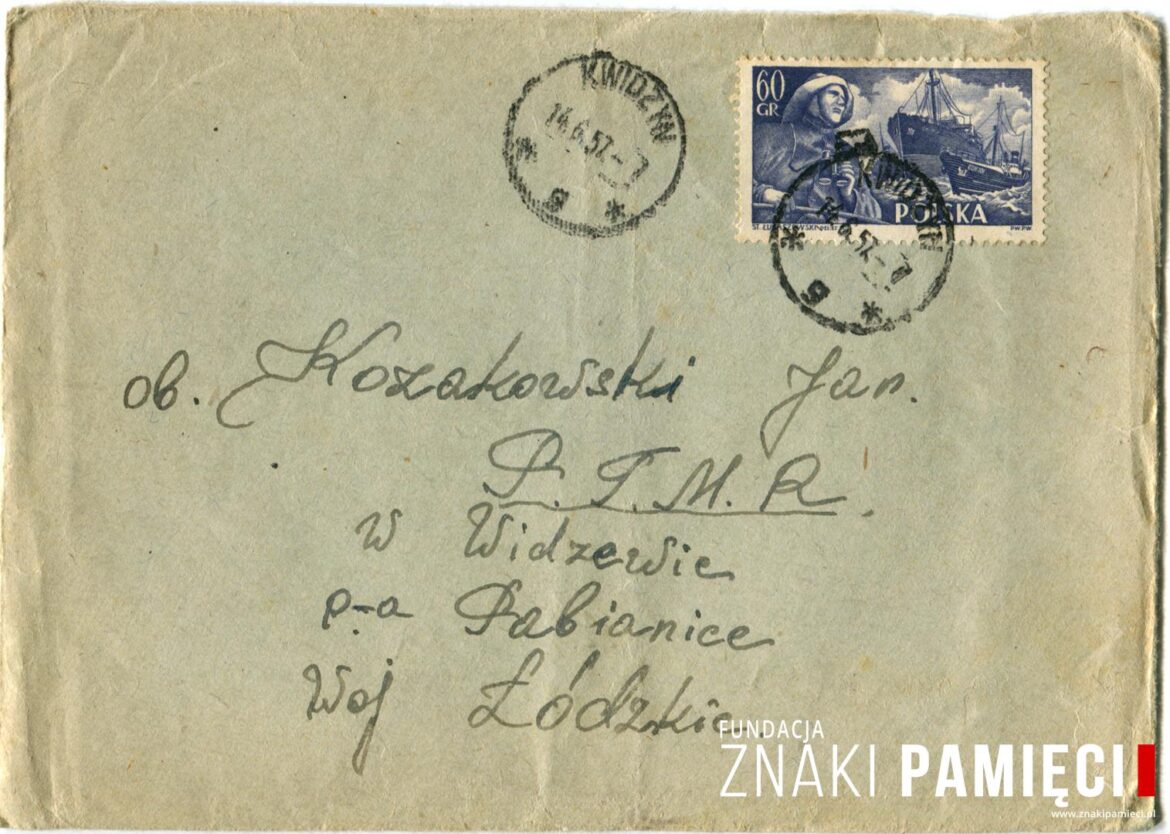 KWIDZYN
14.6.57.-7
* g *
60
GR
POLSKA
PW.PW.
KWIDZYN
14.6.57.-7
* g *
ob. Kozakowski Jan.
P. T. M. R.
w Widzewie
p-a Pabianice
Woj Łódzkie
FUNDACJA
ZNAKI PAMIĘCI
www.znakipamieci.pl